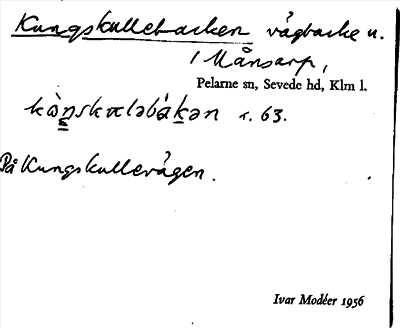 Kungskullebacken vägbacke n.
i Månsarp,
Pelarne sn, Sevede hd, Klm l.
r. 63.
På Kungskullevägen.
Ivar Modéer 1956